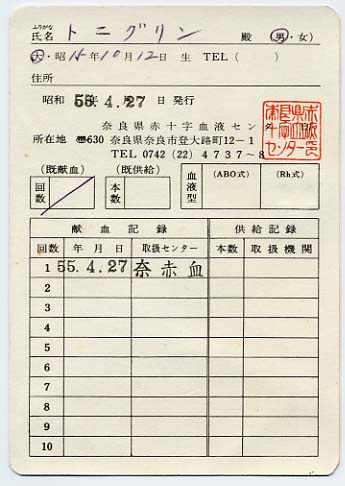 ふりがな
氏名 トニグリン 殿 (男・女)
大・昭 15年10月12日 生 TEL( )
住所
昭和 55年 4.27日 発行
奈良県赤十字血液セン
所在地 〒630 奈良県奈良市登大路町12-1
TEL 0742 (22) 4737~8
(既献血) (既供給)
回数 本数 血液型 (ABO式) (Rh式)
献血記録 供給記録
回数 年月日 取扱センター 本数 取扱機関
1 55.4.27 奈赤血
2
3
4
5
6
7
8
9
10